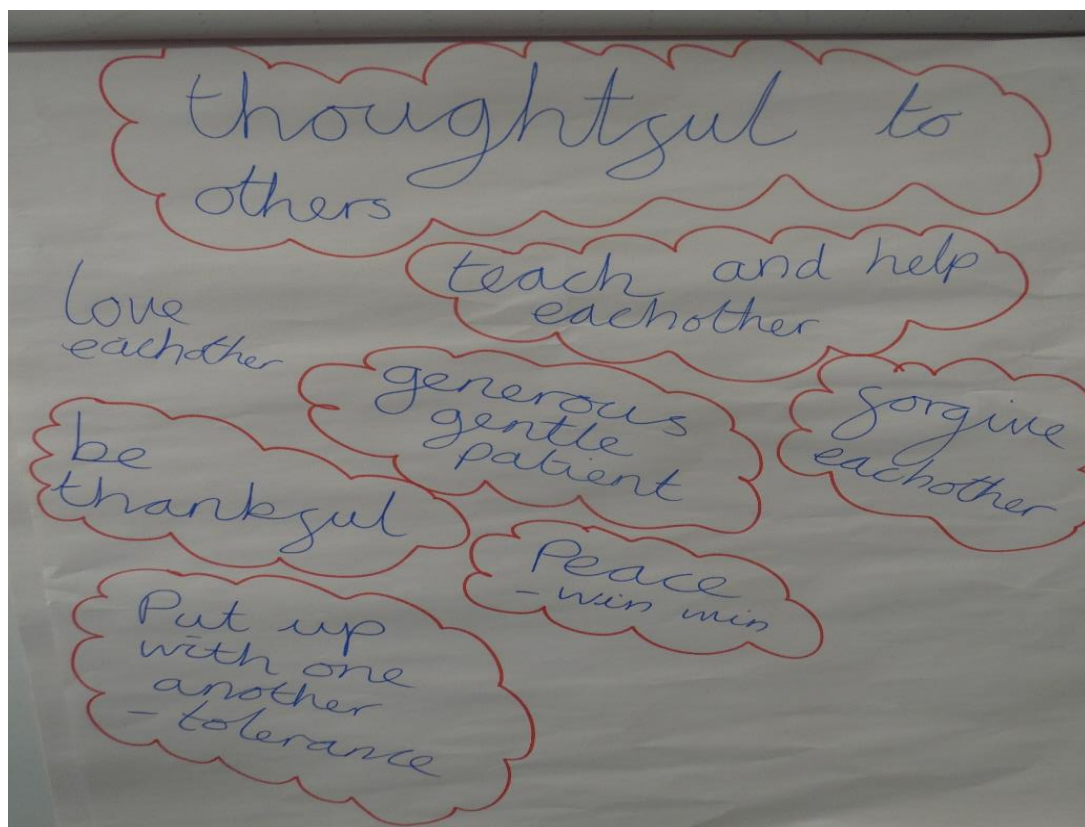 thoughtful to
others
teach and help
eachother
love
eachother
generous
gentle
patient
forgive
eachother
be
thankful
Peace
- win win
Put up
with one
another
- tolerance